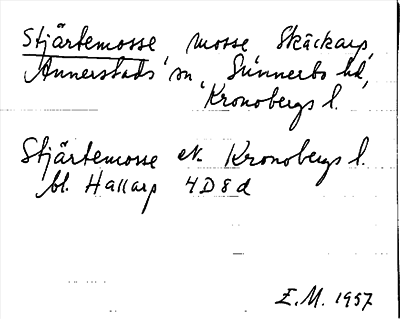 Stjärtemosse, mosse, Skäckarp,
Annerstads sn, Sunnerbo hd,
Kronobergs l.
Stjärtemosse ek. Kronobergs l.
bl. Hallarp 4D8d
E.M. 1957